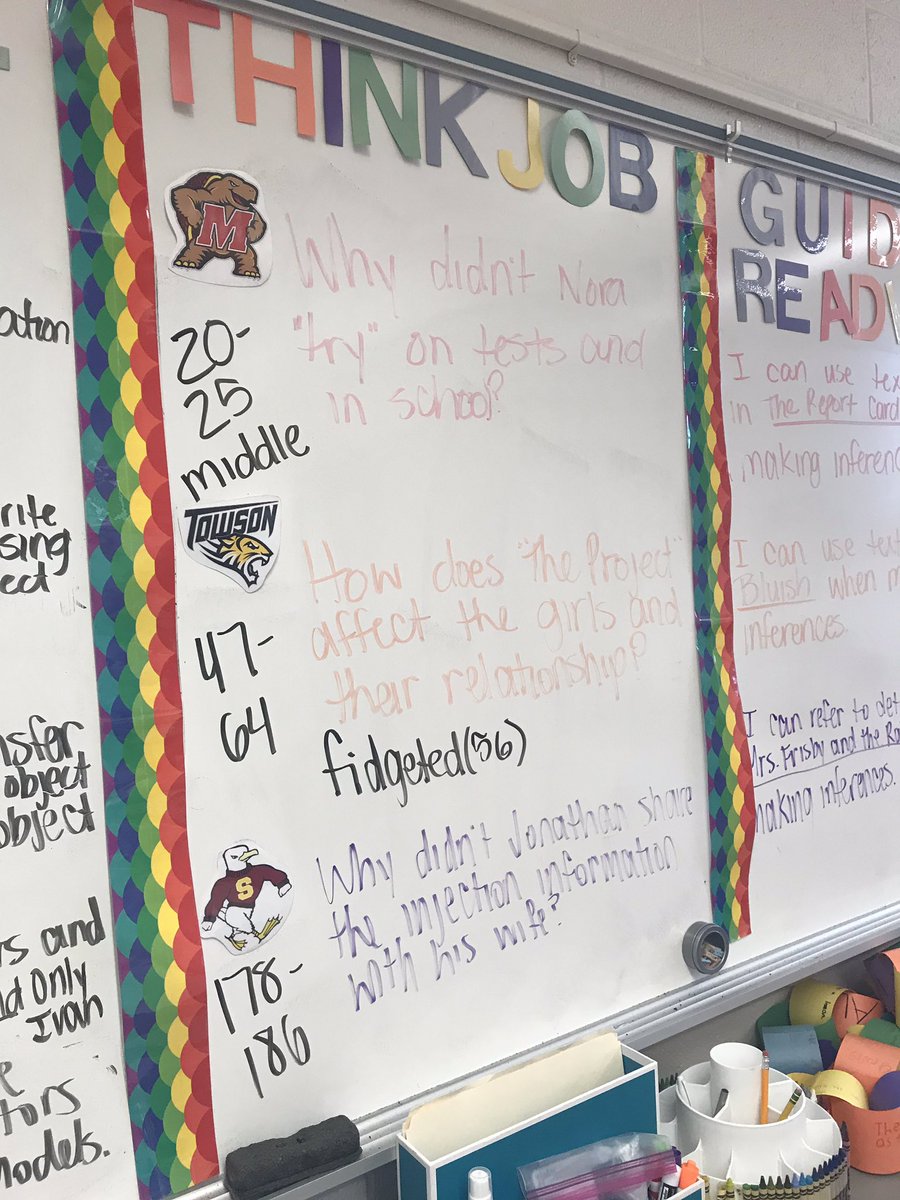 ation
rite
sing
ect
nsfer
object
object
s and
d Only
Ivan
e
tors
Models.
THINK JOB
M
20-
25
middle
Why didn't Nora
"try" on tests and
in school?
TOWSON
47-
64
How does "The Project"
affect the girls and
their relationship?
fidgeted (56)
S
178-
186
Why didn't Jonathan share
the injection information
with his wife?
GUID
READ
I can use tex
in The Report Card
making inferenc
I can use text
Bluish when m
inferences.
I can refer to det
Mrs. Frisby and the Ra
making inferences.